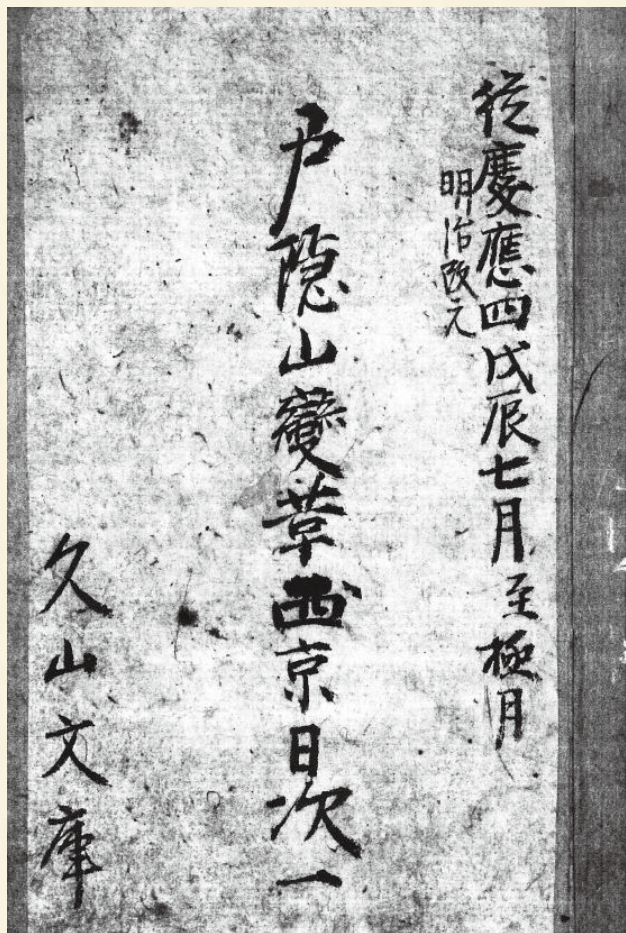 從慶應四戊辰七月至極月
明治改元
戸隠山變革西京日次一
久山文庫